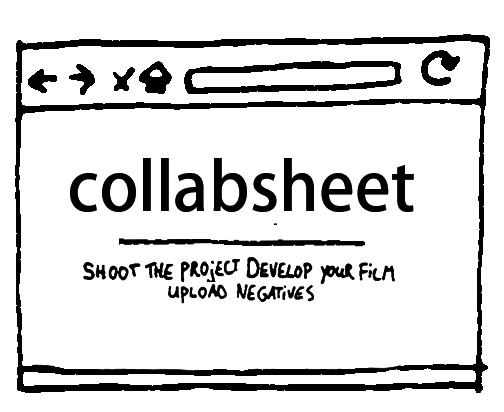 collabsheet
SHOOT THE PROJECT DEVELOP YOUR FILM
UPLOAD NEGATIVES